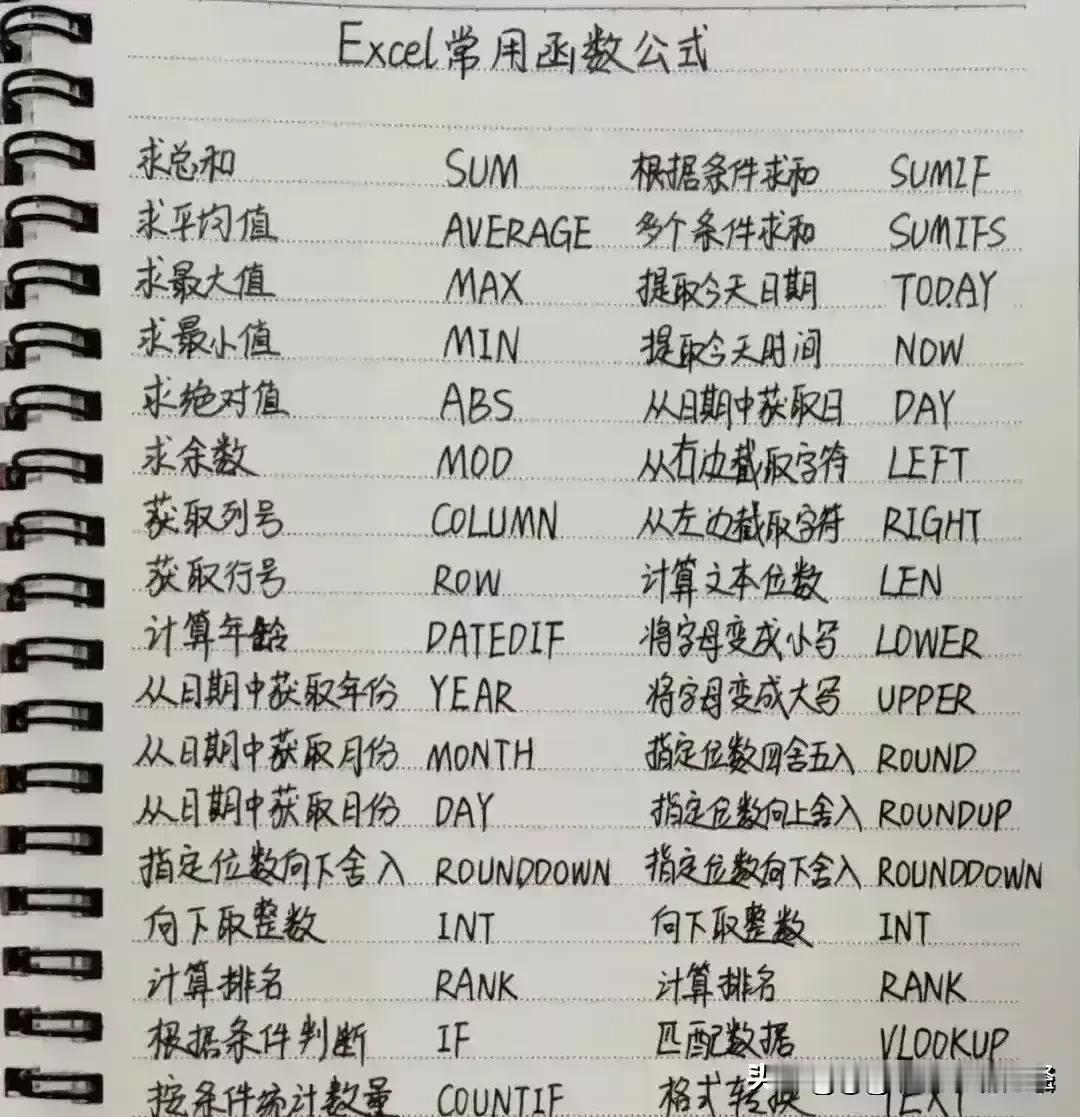 Excel常用函数公式
求总和 SUM 根据条件求和 SUMIF
求平均值 AVERAGE 多个条件求和 SUMIFS
求最大值 MAX 提取今天日期 TODAY
求最小值 MIN 提取今天时间 NOW
求绝对值 ABS 从日期中获取日 DAY
求余数 MOD 从右边截取字符 LEFT
获取列号 COLUMN 从左边截取字符 RIGHT
获取行号 ROW 计算文本位数 LEN
计算年龄 DATEDIF 将字母变成小写 LOWER
从日期中获取年份 YEAR 将字母变成大写 UPPER
从日期中获取月份 MONTH 指定位数四舍五入 ROUND
从日期中获取日份 DAY 指定位数向上舍入 ROUNDUP
指定位数向下舍入 ROUNDDOWN 指定位数向下舍入 ROUNDDOWN
向下取整数 INT 向下取整数 INT
计算排名 RANK 计算排名 RANK
根据条件判断 IF 匹配数据 VLOOKUP
按条件统计数量 COUNTIF 格式转换 TEXT